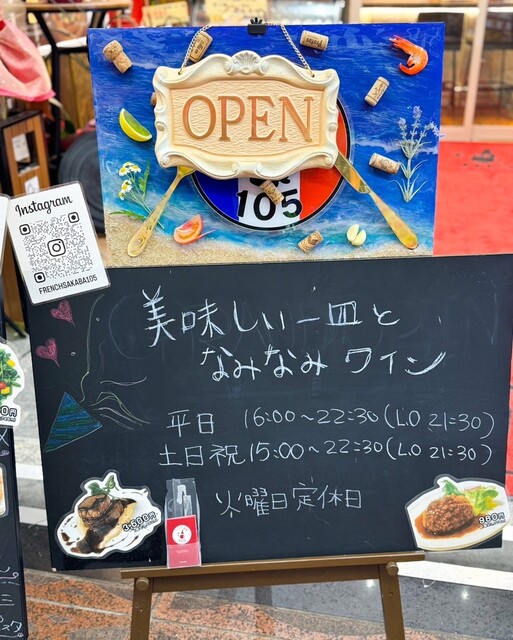 OPEN
105
Instagram
FRENCHSAKABA105
美味しい一皿と
なみなみワイン
平日 16:00〜22:30(L.O 21:30)
土日祝 15:00〜22:30(L.O 21:30)
火曜日定休日
3,600円
980円